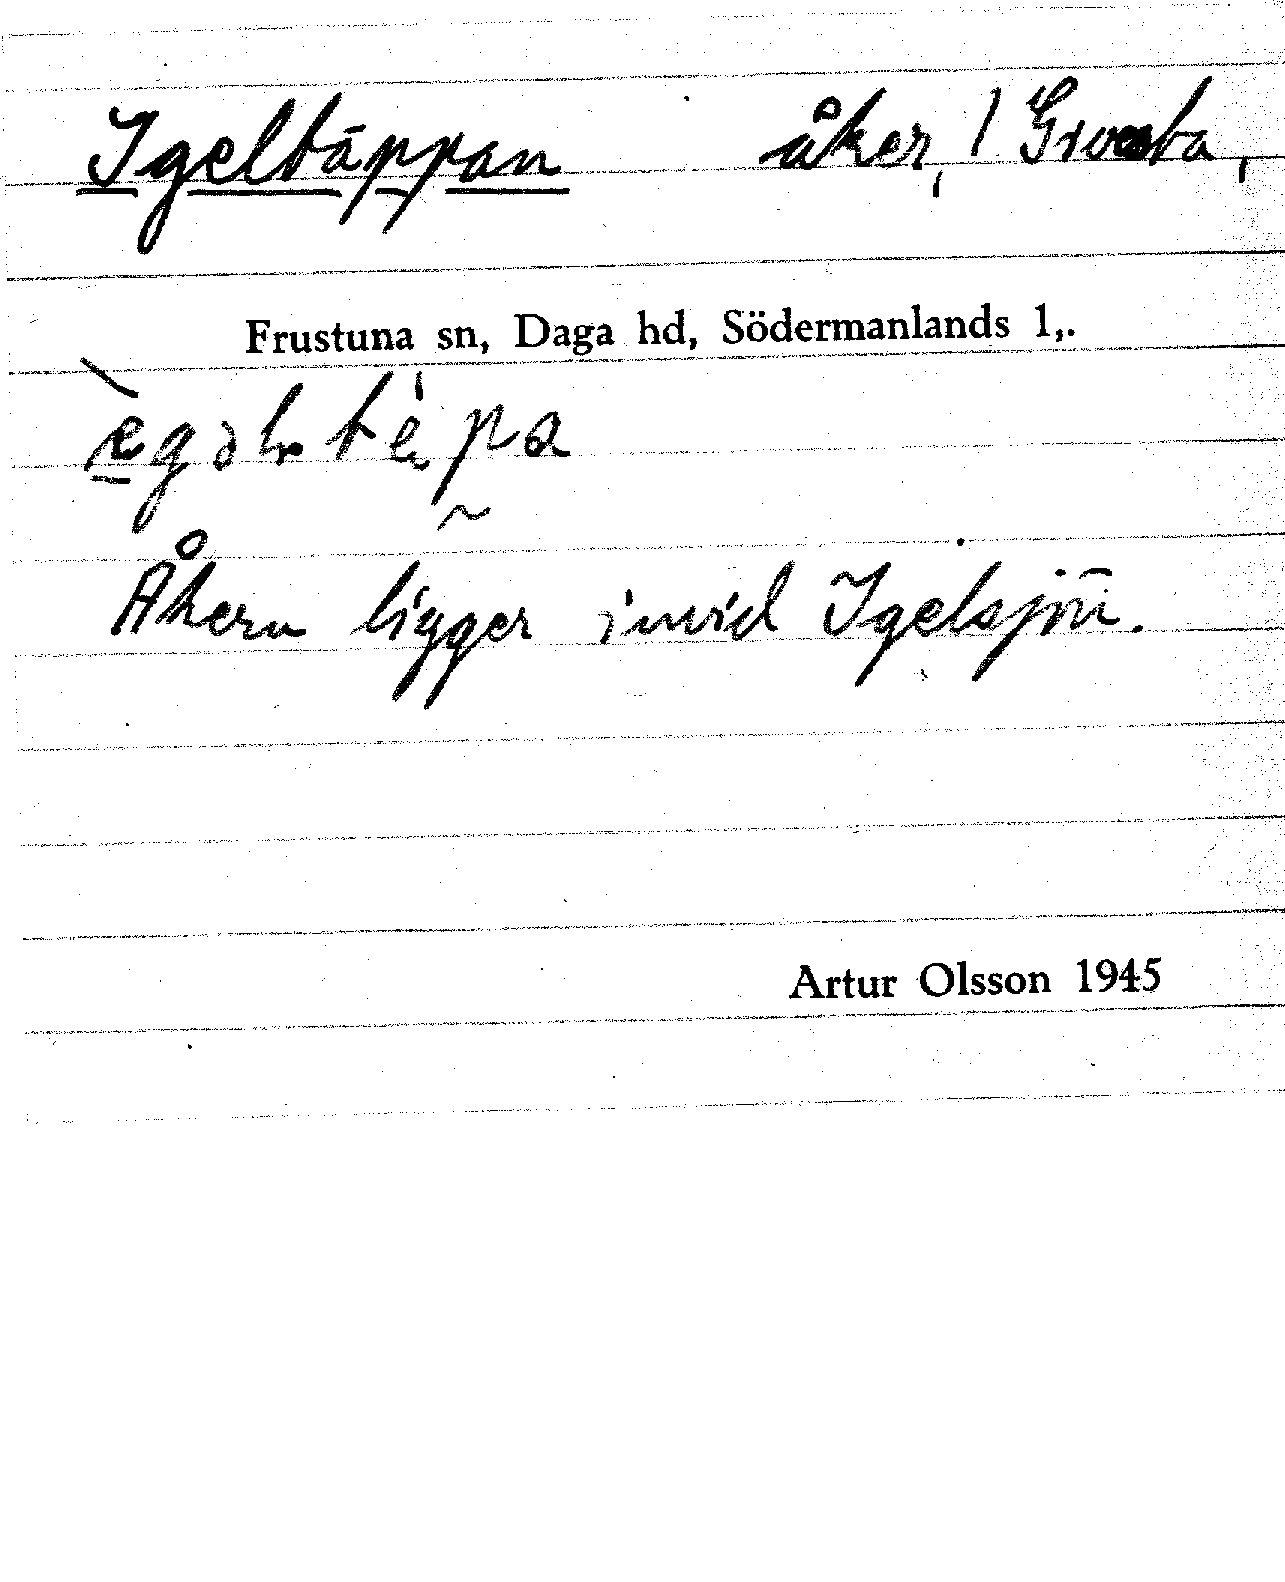 Igeltäppan åker, 1 Grossta,
Frustuna sn, Daga hd, Södermanlands l,.
Åkern ligger invid Igelsjön.
Artur Olsson 1945